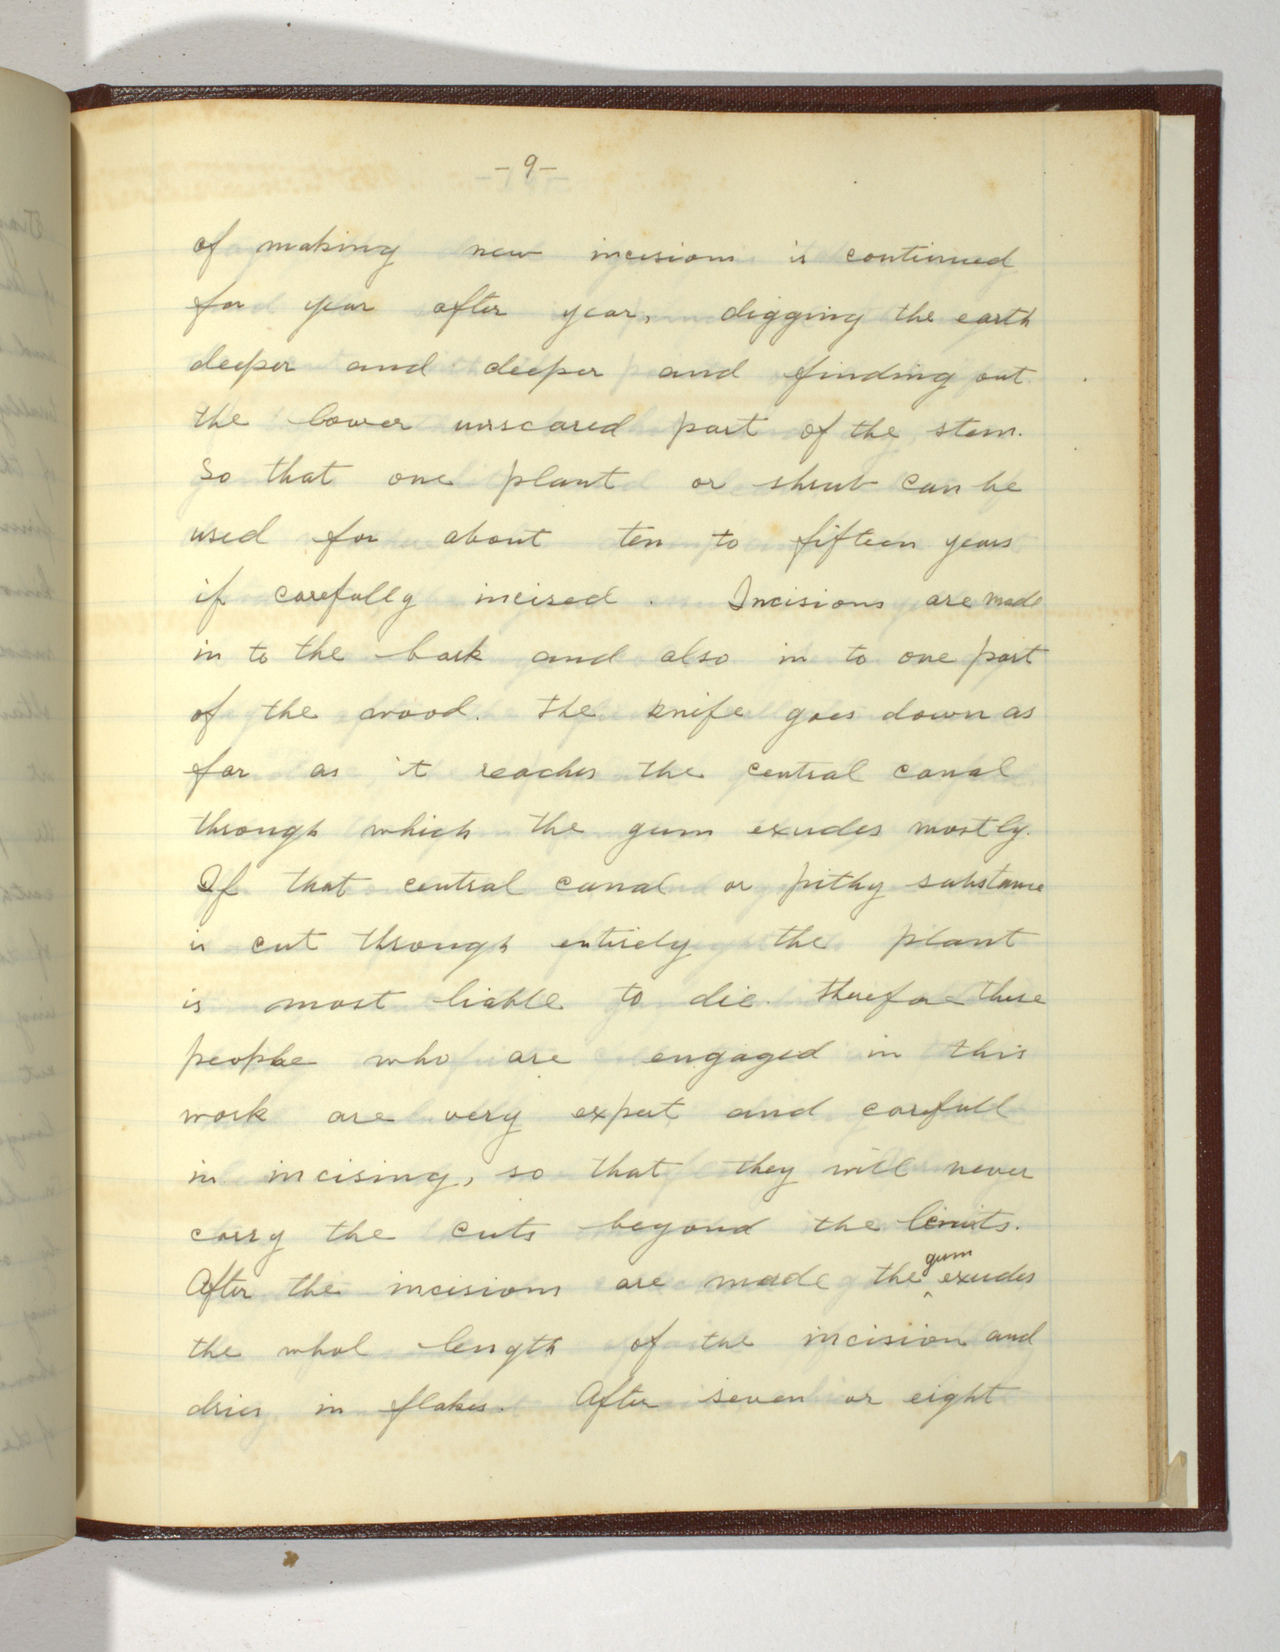 -9-
of making new incisions is continued
for year after year, digging the earth
deeper and deeper and finding out
the lower unscared part of the stem.
So that one plant or shrub can be
used for about ten to fifteen years
if carefully incised. Incisions are made
in to the bark and also in to one part
of the wood. The knife goes down as
far as it reaches the central canal
through which the gum exudes mostly.
If that central canal or pithy substance
is cut through entirely the plant
is most liable to die. Therefore these
people who are engaged in this
work are very expert and carefull
in incising, so that they will never
carry the cuts beyond the limits.
After the incisions are made the gum exudes
the whol length of the incision and
dries in flakes. After seven or eight